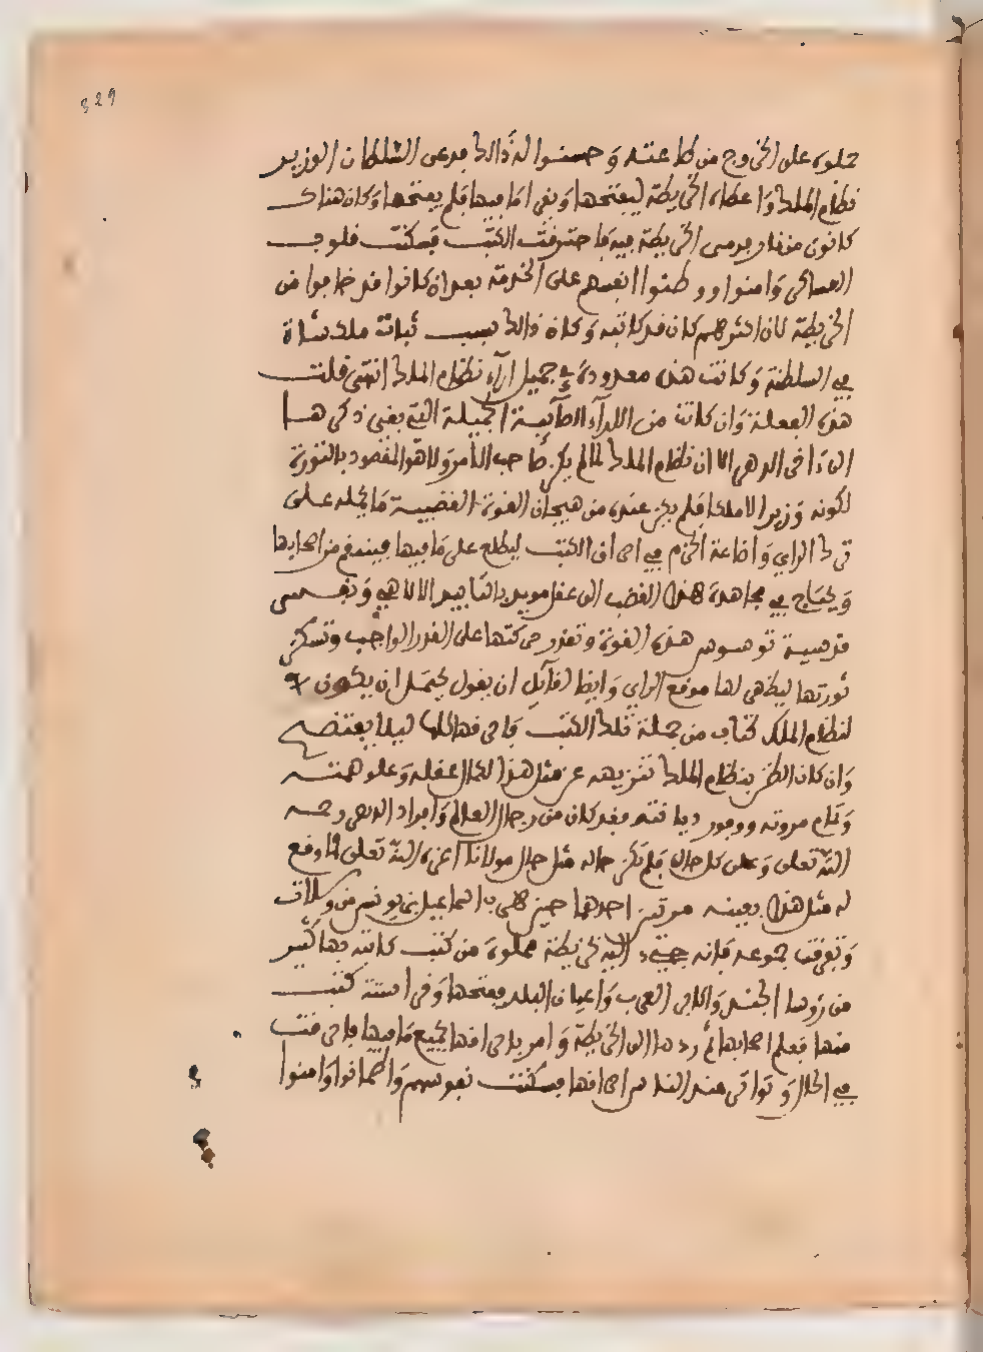 329
حملوه على الخروج من طاعته وحسنوا له ذالك فدعى السلطان الوزير
نظام الملك واعطاه الخريطة ليفتحها ويقرا ما فيها فلم يفتحها وكان هناك
كانون من نار فرمى الخريطة فيه فاحترقت الكتب فسكنت قلوب
العساكر وامنوا ووطنوا انفسهم على الخدمة بعد ان كانوا قد خافوا من
الخريطة لان اكثرهم كان قد كاتبه وكان ذالك سبب ثبات ملك شاه
في السلطنة وكانت هذه معدودة في جميل آراء نظام الملك انتهى قلت
هذه الفعلة وان كانت من الاراء الصائبة الجميلة التي بقي ذكرها
الى اخر الدهر الا ان نظام الملك لما لم يكن صاحب الامر ولا هو المقصود بالثورة
لكونه وزيرا لا ملكا فلم يكن عنده من هيجان القوة الغضبية ما يحمله على
ترك الراي واضاعة الحزم في احراق الكتب ليطلع على ما فيها فينتقم من اصحابها
ويحتاج في مجاهدة هذا الغضب الى عقل مويد بالتاييد الالاهي ونفس
قدسية تسوس هذه القوة وتقدر حركتها على القدر الواجب وتسكن
ثورتها ليظهر لها موقع الراي وايضا لقائل ان يقول يحتمل ان يكون
لنظام الملك كتاب من جملة تلك الكتب فاحرقها كلها ليلا يفتضح
وان كان الظن بنظام الملك تنزيهه عن مثل هذا لكمال عقله وعلو همته
وتمام مروته ووفور ديانته فقد كان من رجال العالم وافراد الدهر رحمه
الله تعالى وعلى كل حال فلم تكن حاله مثل حال مولانا اعزه الله تعالى لما وقع
له مثل هذا بعينه مرتين احدهما حين هرب اسماعيل بن يونس من
وتفرقت جموعه فانه جيء اليه بخريطة مملوة من كتب كاتبه بها كثير
من رؤسا الجند واكابر العرب واعيان البلد ففتحها وقرا ستة كتب
منها فعلم اصحابها ثم ردها الى الخريطة وامر باحراقها بجميع ما فيها فاحرقت
في الحال وتواتر عند الناس احراقها فسكنت نفوسهم واطمانوا وامنوا